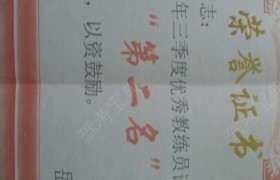 荣誉证书
志：
年三季度优秀教练员
“第二名”
，以资鼓励。
岳